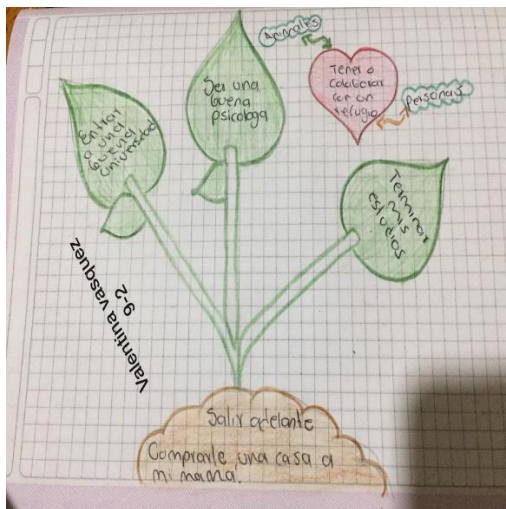 Animales
Tener o
colaborar
con un
refugio
Personas
Ser una
buena
psicologa
Entrar
a una
buena
universidad
Terminar
mis
estudios
Valentina vasquez
9-2
Salir adelante
Comprarle una casa a
mi mama.